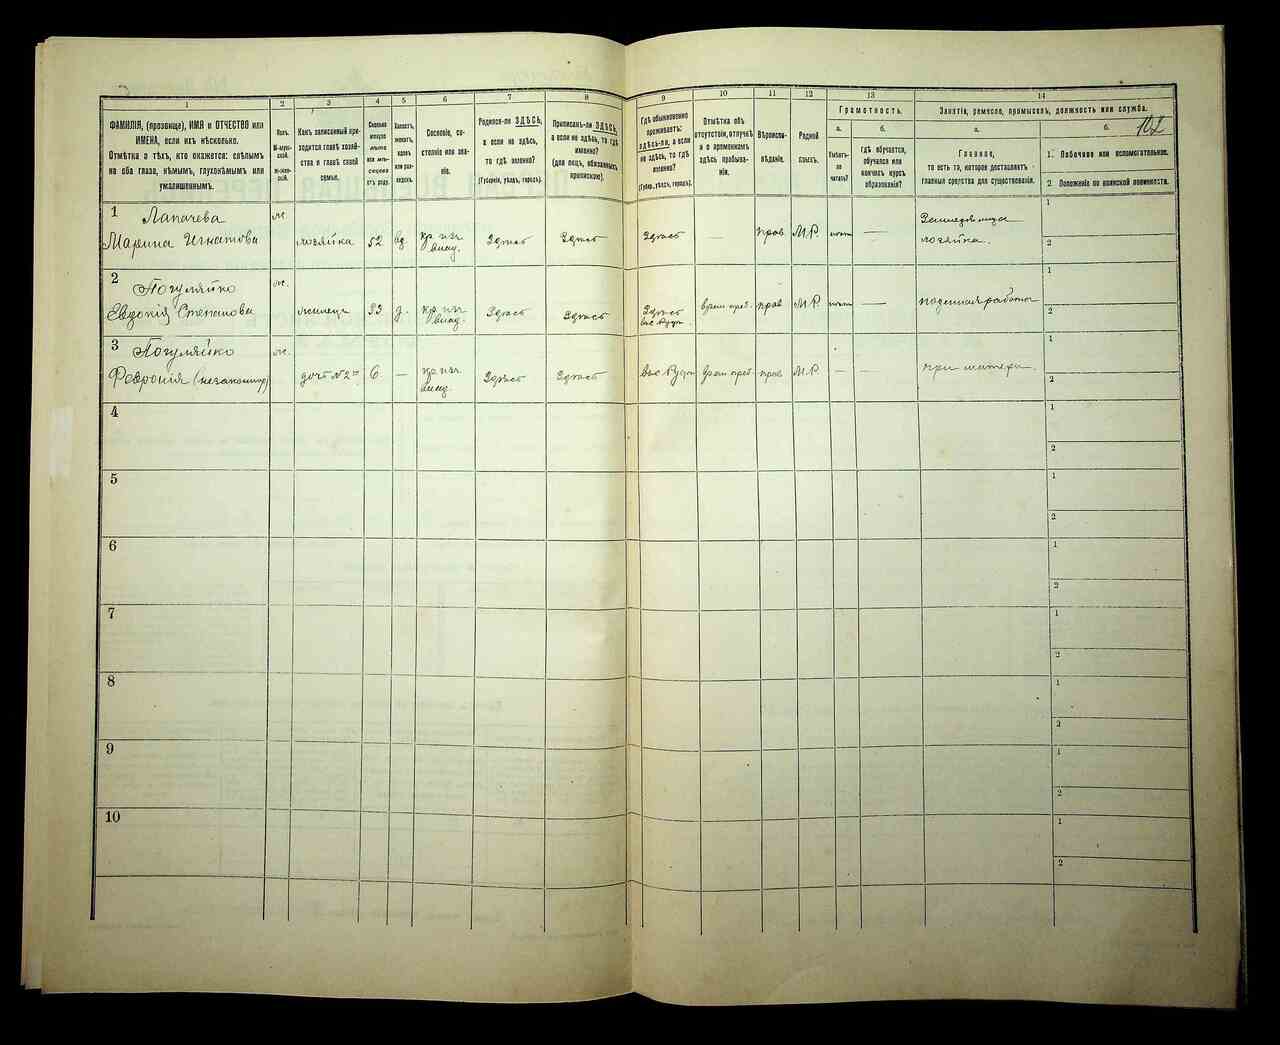 102
1 2 3 4 5 6 7 8 9 10 11 12 13 14
ФАМИЛІЯ, (прозвище), ИМЯ и ОТЧЕСТВО или
ИМЕНА, если ихъ нѣсколько.
Отмѣтка о тѣхъ, кто окажется: слѣпымъ
на оба глаза, нѣмымъ, глухонѣмымъ или
умалишеннымъ.
Полъ.
М-муж-
ской.
Ж-жен-
скій.
Какъ записанный при-
ходится главѣ хозяй-
ства и главѣ своей
семьи.
Сколько
отъ роду.
Холостъ,
женатъ,
вдовъ
или раз-
веденъ.
Сословіе, со-
стояніе или зва-
ніе.
Родился-ли ЗДѢСЬ,
а если не здѣсь,
то гдѣ именно?
(Губернія, уѣздъ, городъ).
Приписанъ-ли ЗДѢСЬ,
а если не здѣсь, то гдѣ
именно?
(для лицъ, обязанныхъ
припискою).
Гдѣ обыкновенно
проживаетъ:
здѣсь-ли, а если
не здѣсь, то гдѣ
именно?
(Губерн., уѣздъ, городъ).
Отмѣтка объ
отсутствіи, отлучкѣ
и о временномъ
здѣсь пребыва-
ніи.
Вѣроиспо-
вѣданіе.
Родной
языкъ.
Грамотность.
а.
Умѣетъ-
ли
читать?
б.
Гдѣ обучается,
обучался или
кончилъ курсъ
образованія?
Занятіе, ремесло, промыселъ, должность или служба.
а.
Главное,
то есть то, которое доставляетъ
главныя средства для существованія.
б.
1. Побочное или вспомогательное.
2. Положеніе по воинской повинности.
1 Лапачева
Марина Игнатова
ж
хозяйка 52 вд. кр. изъ
влад.
Здѣсь Здѣсь Здѣсь — прав М.Р. —
хозяйка.
1
2
2 Погуляйко
Евдокія Степанова
ж.
жилець 33 д. кр. изъ
влад.
Здѣсь Здѣсь Здѣсь
врем. преб. прав М.Р. — поденная работа
1
2
3 Погуляйко
Февронія (незаконнор)
ж.
доч. №2й 6 — кр. изъ
влад.
Здѣсь Здѣсь врем преб. прав М.Р. — — при матери.
1
2
4
1
2
5
1
2
6
1
2
7
1
2
8
1
2
9
1
2
10
1
2